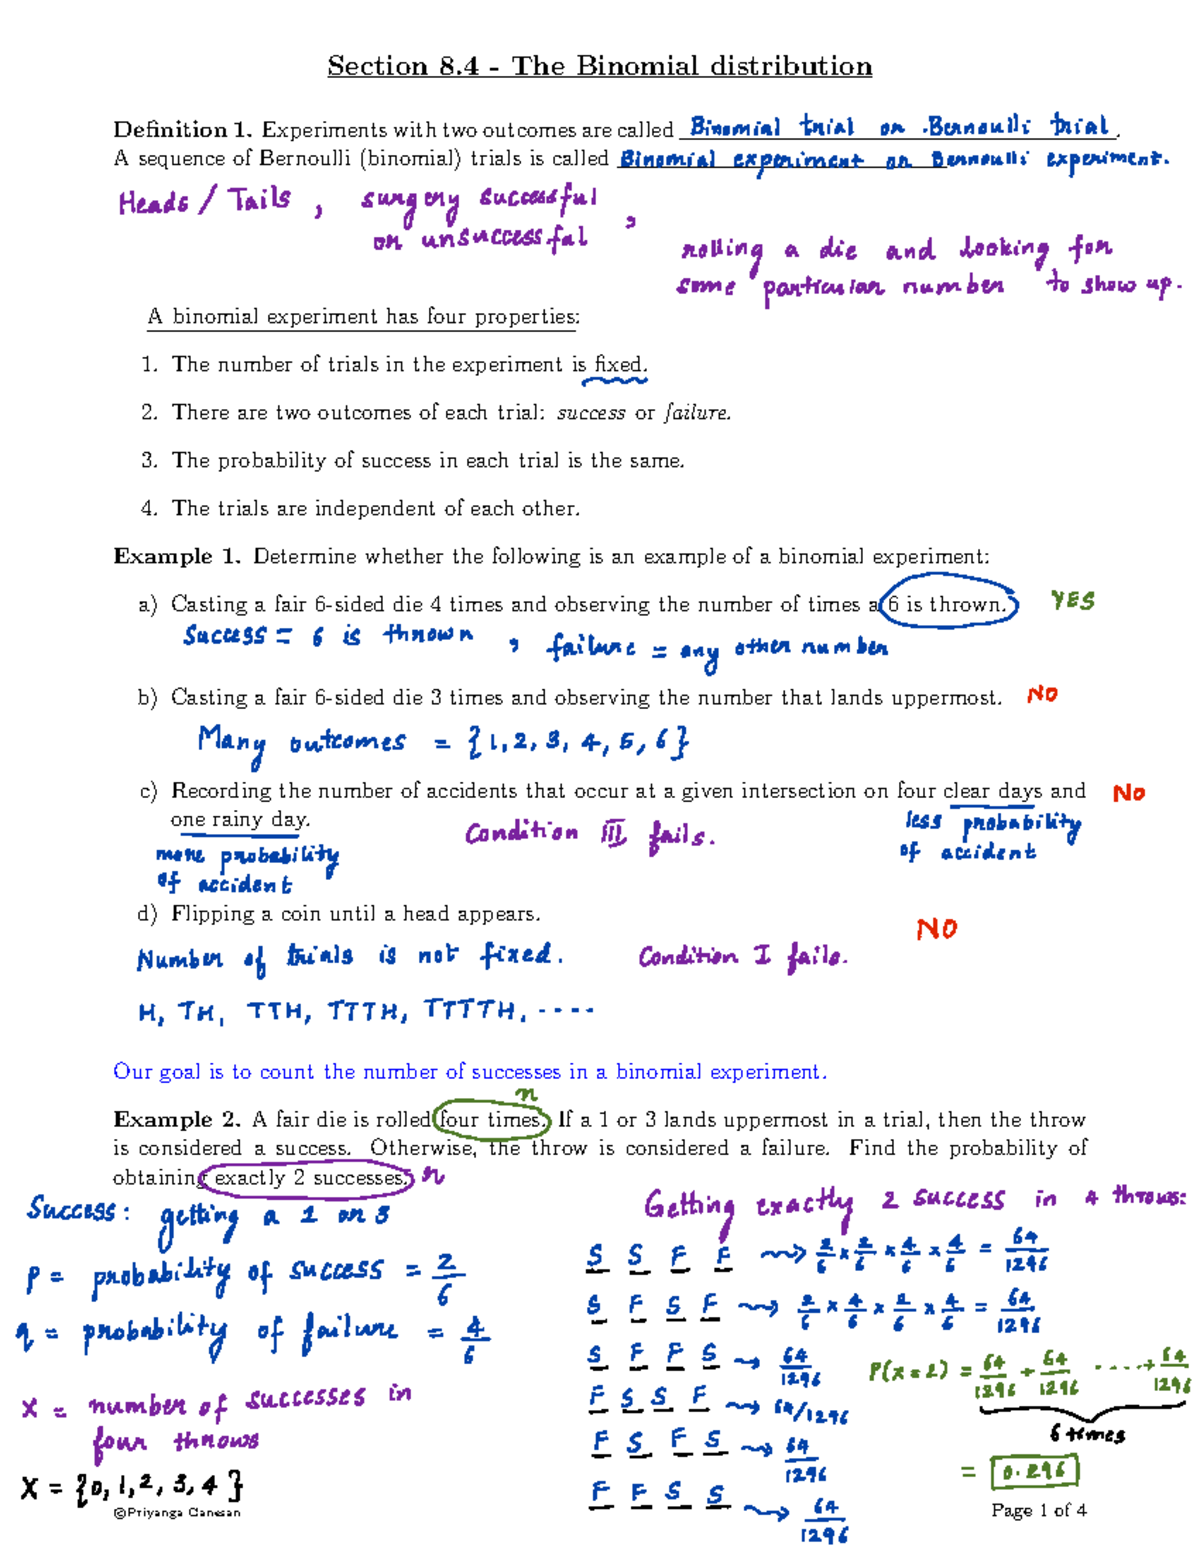 Section 8.4 - The Binomial distribution
Definition 1. Experiments with two outcomes are called Binomial trial or Bernoulli trial.
A sequence of Bernoulli (binomial) trials is called Binomial experiment or Bernoulli experiment.
Heads / Tails , surgery successful
or unsuccessful ,
rolling a die and looking for
some particular number to show up.
A binomial experiment has four properties:
1. The number of trials in the experiment is fixed.
2. There are two outcomes of each trial: success or failure.
3. The probability of success in each trial is the same.
4. The trials are independent of each other.
Example 1. Determine whether the following is an example of a binomial experiment:
a) Casting a fair 6-sided die 4 times and observing the number of times a 6 is thrown. YES
Success = 6 is thrown , failure = any other number
b) Casting a fair 6-sided die 3 times and observing the number that lands uppermost. NO
Many outcomes = {1, 2, 3, 4, 5, 6}
c) Recording the number of accidents that occur at a given intersection on four clear days and No
one rainy day. Condition III fails. less probability
more probability of accident
of accident
d) Flipping a coin until a head appears. NO
Number of trials is not fixed. Condition I fails.
H, TH, TTH, TTTH, TTTTH, ----
Our goal is to count the number of successes in a binomial experiment.
n
Example 2. A fair die is rolled four times. If a 1 or 3 lands uppermost in a trial, then the throw
is considered a success. Otherwise, the throw is considered a failure. Find the probability of
obtaining exactly 2 successes. r
Success: getting a 1 or 3
p = probability of success = 2/6
q = probability of failure = 4/6
X = number of successes in
four throws
X = {0, 1, 2, 3, 4}
Getting exactly 2 success in 4 throws:
S S F F → 2/6 × 2/6 × 4/6 × 4/6 = 64/1296
S F S F → 2/6 × 4/6 × 2/6 × 4/6 = 64/1296
S F F S → 64/1296
F S S F → 64/1296
F S F S → 64/1296
F F S S → 64/1296
P(X=2) = 64/1296 + 64/1296 ----- + 64/1296
6 times
= 0.296
©Priyanga Ganesan
Page 1 of 4